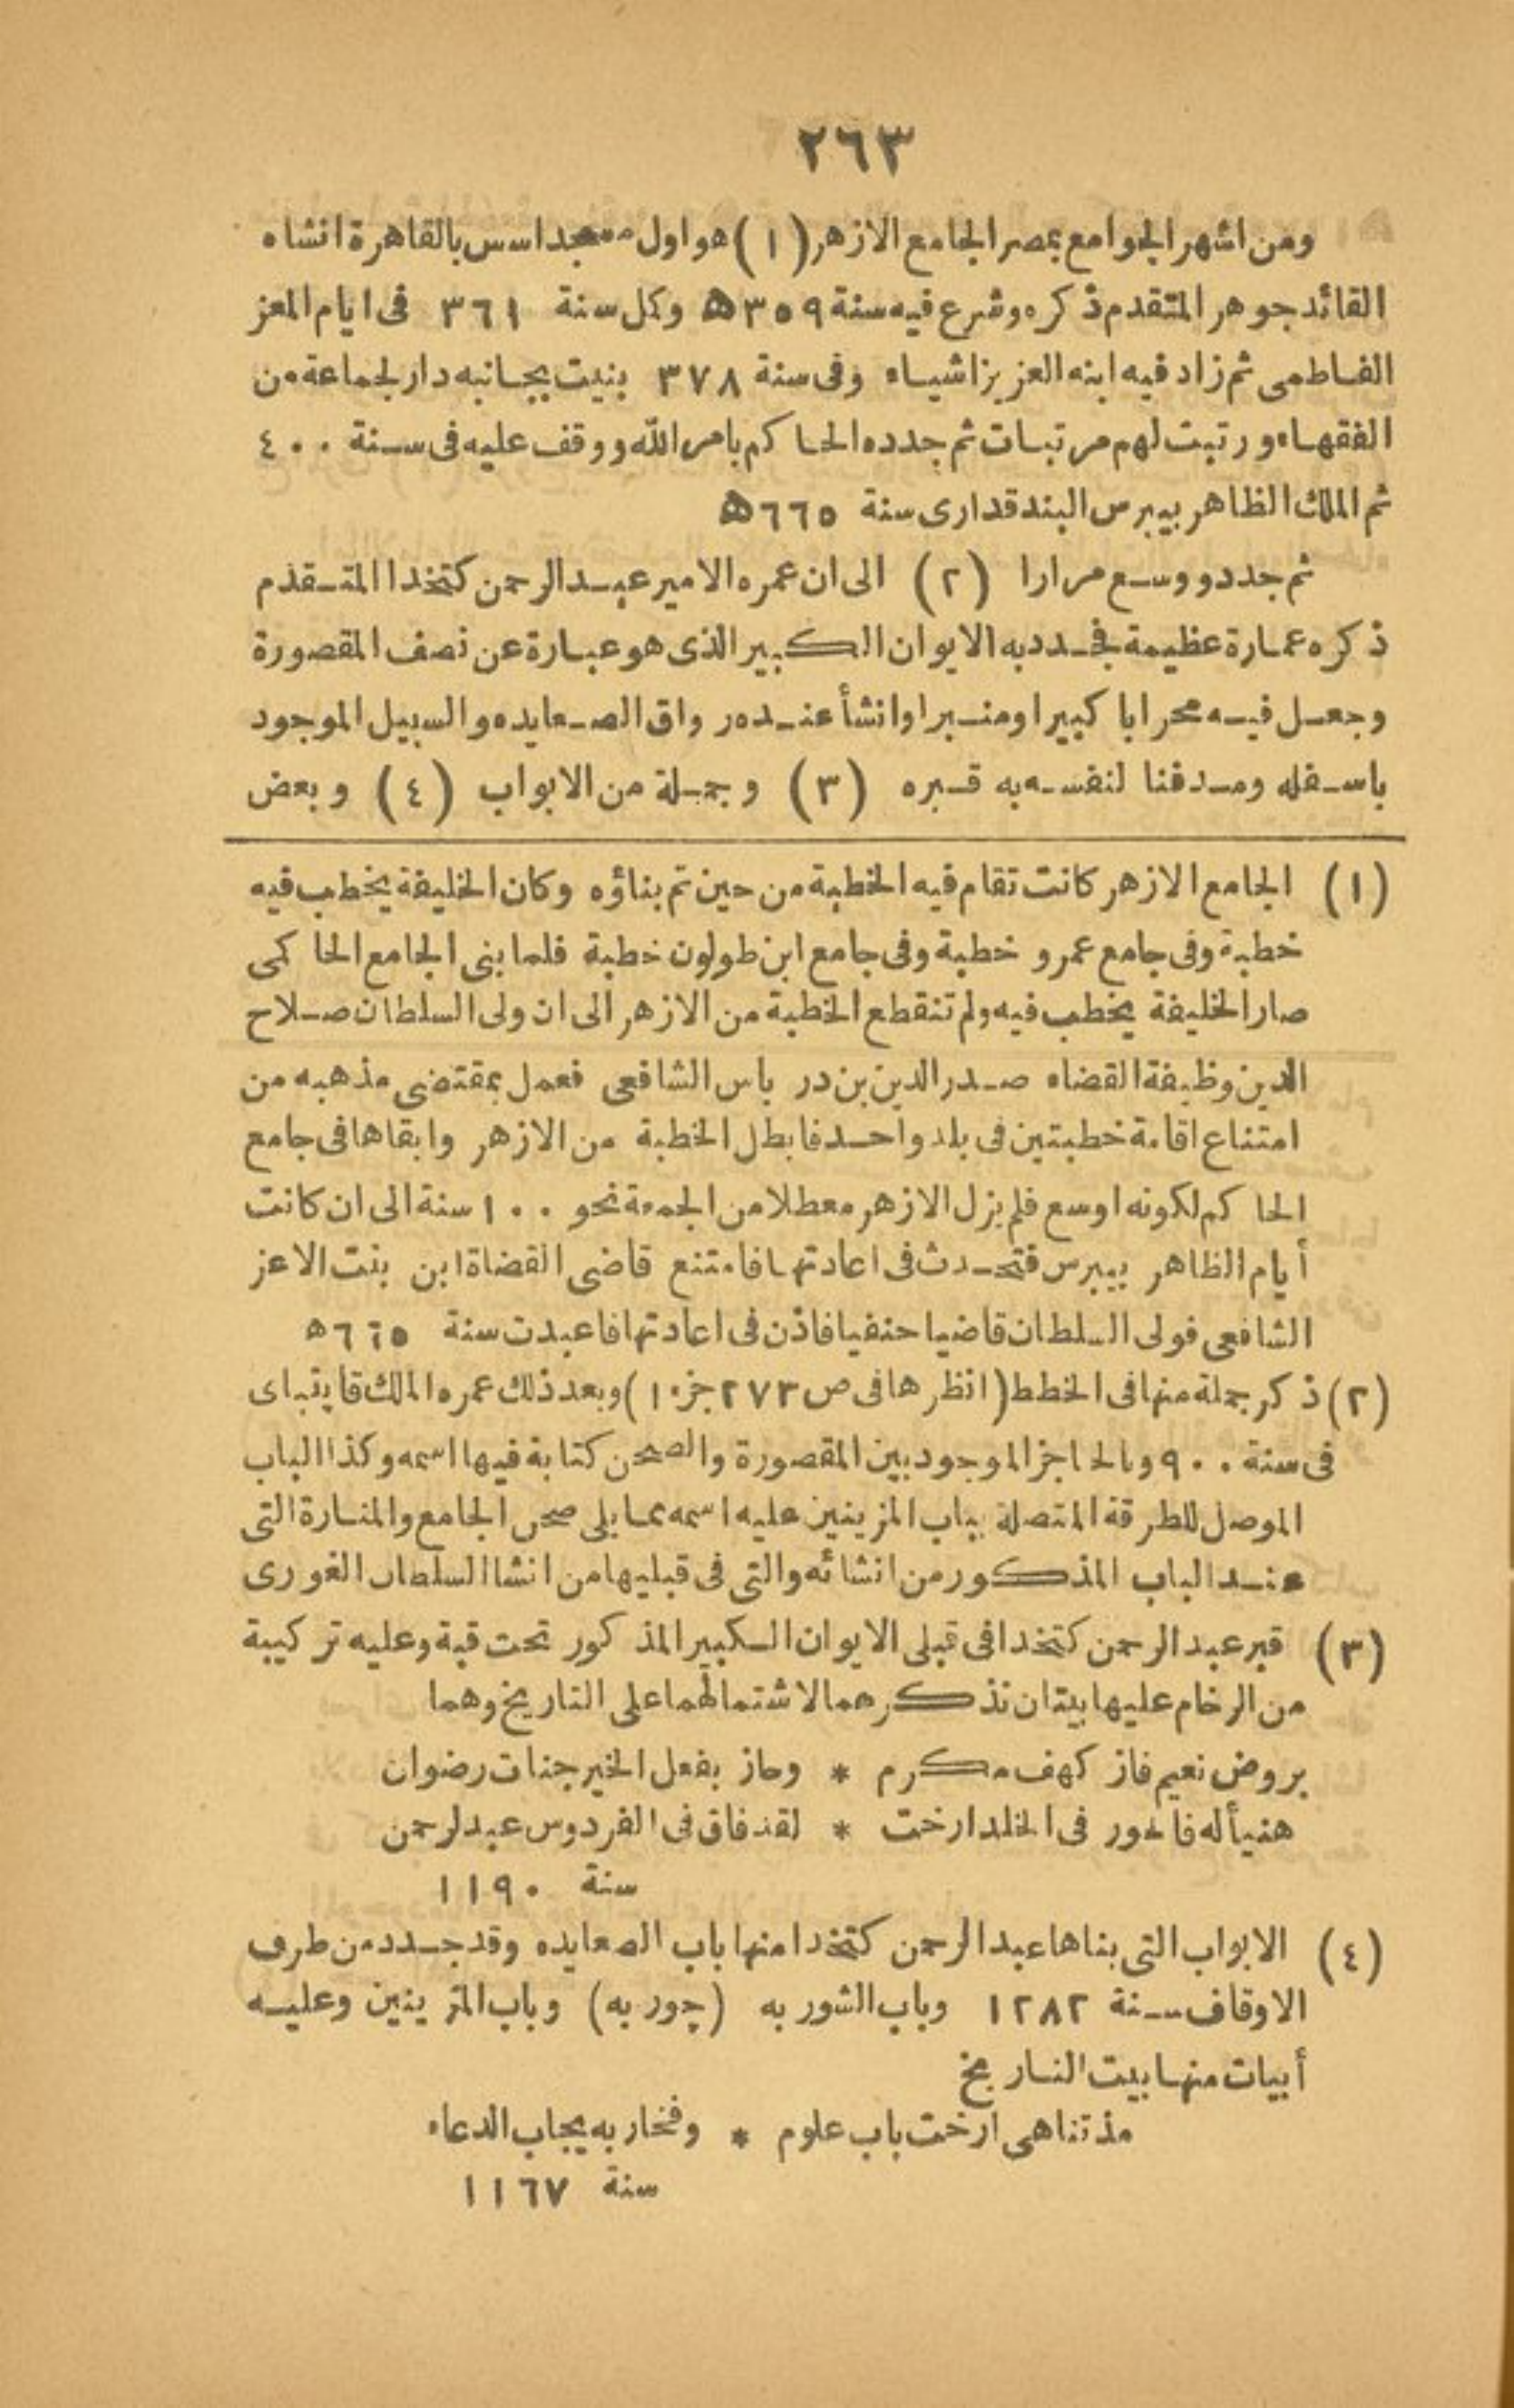 ٢٦٣
ومن اشهر الجوامع بمصر الجامع الازهر (١) هو اول مسجد اسس بالقاهرة انشاه
القائد جوهر المتقدم ذكره وشرع فيه سنة ٣٥٩ ه وكمل سنة ٣٦١ فى ايام المعز
الفاطمى ثم زاد فيه ابنه العزيز اشياء وفى سنة ٣٧٨ بنيت بجانبه دار لجماعة من
الفقهاء ورتبت لهم مرتبات ثم جدده الحاكم بامر الله ووقف عليه فى سنة ٤٠٠
ثم الملك الظاهر بيبرس البندقدارى سنة ٦٦٥ ه
ثم جدد ووسع مرارا (٢) الى ان عمره الامير عبد الرحمن كتخدا المتقدم
ذكره عمارة عظيمة فجدد به الايوان الكبير الذى هو عبارة عن نصف المقصورة
وجعل فيه محرابا كبيرا ومنبرا وانشأ عنده رواق الصعايده والسبيل الموجود
باسفله ومدفنا لنفسه به قبره (٣) وجملة من الابواب (٤) وبعض
(١) الجامع الازهر كانت تقام فيه الخطبة من حين تم بناؤه وكان الخليفة يخطب فيه
خطبة وفى جامع عمرو خطبة وفى جامع ابن طولون خطبة فلما بنى الجامع الحاكمى
صار الخليفة يخطب فيه ولم تنقطع الخطبة من الازهر الى ان ولى السلطان صلاح
الدين وظيفة القضاء صدر الدين بن درباس الشافعى فعمل بمقتضى مذهبه من
امتناع اقامة خطبتين فى بلد واحد فابطل الخطبة من الازهر وابقاها فى جامع
الحاكم لكونه اوسع فلم يزل الازهر معطلا من الجمعة نحو ١٠٠ سنة الى ان كانت
أيام الظاهر بيبرس فتحدث فى اعادتها فامتنع قاضى القضاة ابن بنت الاعز
الشافعى فولى السلطان قاضيا حنفيا فاذن فى اعادتها فاعيدت سنة ٦٦٥ ه
(٢) ذكر جملة منها فى الخطط (انظرها فى ص ٢٧٣ جزء ١) وبعد ذلك عمره الملك قايتباى
فى سنة ٩٠٠ وبالحاجز الموجود بين المقصورة والصحن كتابة فيها اسمه وكذا الباب
الموصل للطرقة المتصلة بباب المزينين عليه اسمه مما يلى صحن الجامع والمنارة التى
عند الباب المذكور من انشائه والتى فى قبليها من انشا السلطان الغورى
(٣) قبر عبد الرحمن كتخدا فى قبلى الايوان الكبير المذكور تحت قبة وعليه تركيبة
من الرخام عليها بيتان نذكرهما لاشتمالهما على التاريخ وهما
بروض نعيم فاز كهف مكرم * وحاز بفعل الخير جنات رضوان
هنيأ له فالحور فى الخلد ارخت * لقد فاق فى الفردوس عبد لرحمن
سنة ١١٩٠
(٤) الابواب التى بناها عبد الرحمن كتخدا منها باب الصعايده وقد جدد من طرف
الاوقاف سنة ١٢٨٢ وباب الشوربه (چوربه) وباب المزينين وعليه
أبيات منها بيت التاريخ
مذ تناهى ارخت باب علوم * وفخار به يجاب الدعاء
سنة ١١٦٧